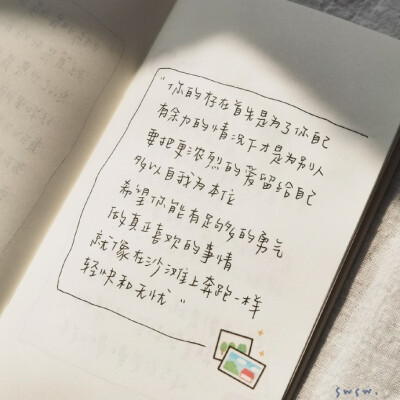 "你的存在首先是为了你自己
有余力的情况下才是为别人
要把更浓烈的爱留给自己
多以自我为本位
希望你能有足够多的勇气
做真正喜欢的事情
就像在沙滩上奔跑一样
轻快和无忧"
swsw.